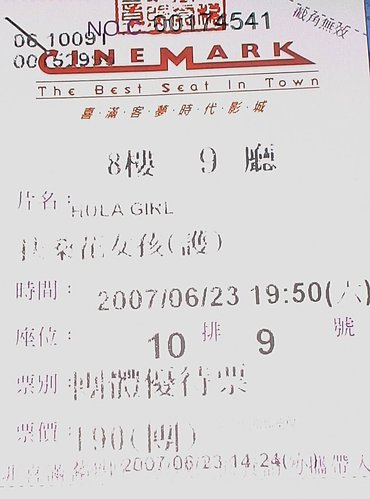 喜滿客影城
NO.C 00174541
誠角無效
06 10091
0015299
CINEMARK
The Best Seat In Town
喜·滿·客·夢·時·代·影·城
8樓 9 廳
片名:HULA GIRL
扶桑花女孩(護)
時間: 2007/06/23 19:50(六)
座位: 10 排 9 號
票別:團體優待票
票價:190(團)
2007/06/23 14,24